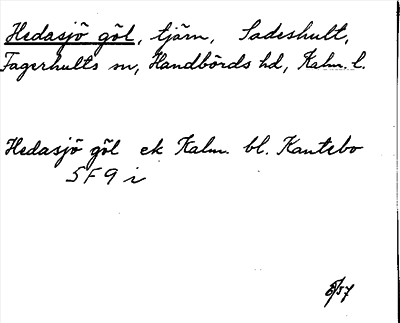 Hedasjö göl, tjärn, Sadeshult,
Fagerhults sn, Handbörds hd, Kalm. l.
Hedasjö göl ek Kalm. bl. Kantebo
5F9i